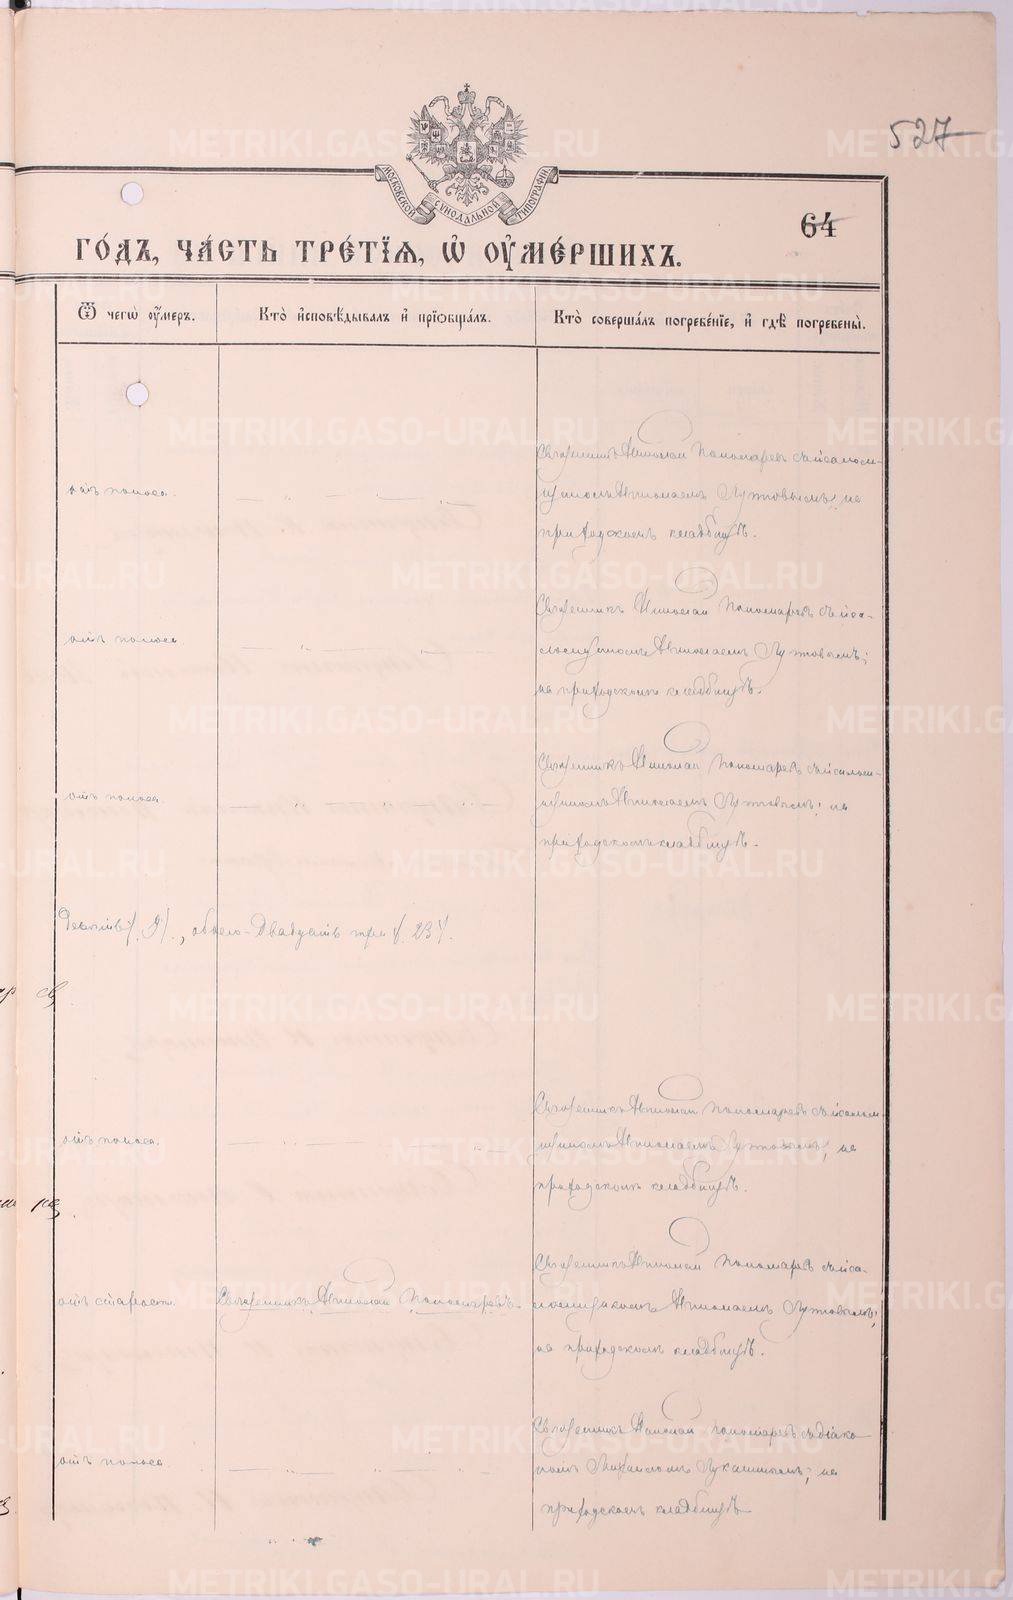 527
МОСКОВСКОЙ СѴНОДАЛЬНОЙ ТИПОГРАФІИ
64
ГО́ДЪ, ЧА́СТЬ ТРЕ́ТІЯ, Ѡ҆ ОУ҆МЕ́РШИХЪ.
Ѿ чегѡ̀ оу҆́меръ.
Кто̀ и҆сповѣ́дывалъ и҆ прїѡбща́лъ.
Кто̀ соверша́лъ погребе́нїе, и҆ гдѣ̀ погребены̀.
Священникъ Николай Пономаревъ съ псалом-
отъ поноса.
щикомъ Николаемъ Лутовымъ; на
приходскомъ кладбищѣ.
Священникъ Николай Пономаревъ съ пса-
отъ поноса
ломщикомъ Николаемъ Лутовымъ;
на приходскомъ кладбищѣ.
Священникъ Николай Пономаревъ съ псалом-
отъ поноса.
щикомъ Николаемъ Лутовымъ; на
приходскомъ кладбищѣ.
Девять /9/., обоего - Двадцать три /23/.
Священникъ Николай Пономаревъ съ псалом-
отъ поноса.
щикомъ Николаемъ Лутовымъ; на
приходскомъ кладбищѣ.
Священникъ Николай Пономаревъ съ пса-
отъ старости. Священникъ Николай Пономаревъ. ломщикомъ Николаемъ Лутовымъ;
на приходскомъ кладбищѣ.
Священникъ Николай Пономаревъ съ діако-
отъ поноса.
номъ Михаиломъ Лукашинымъ; на
приходскомъ кладбищѣ
METRIKI.GASO-URAL.RU